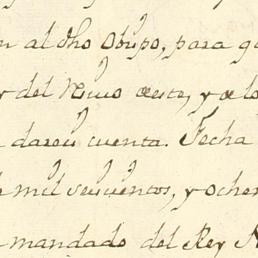 n al dho Obispo, para q
y del Nuevo oeste, y de lo
daren cuenta. Fecha
mil seiscientos, y ochen
mandado del Rey N